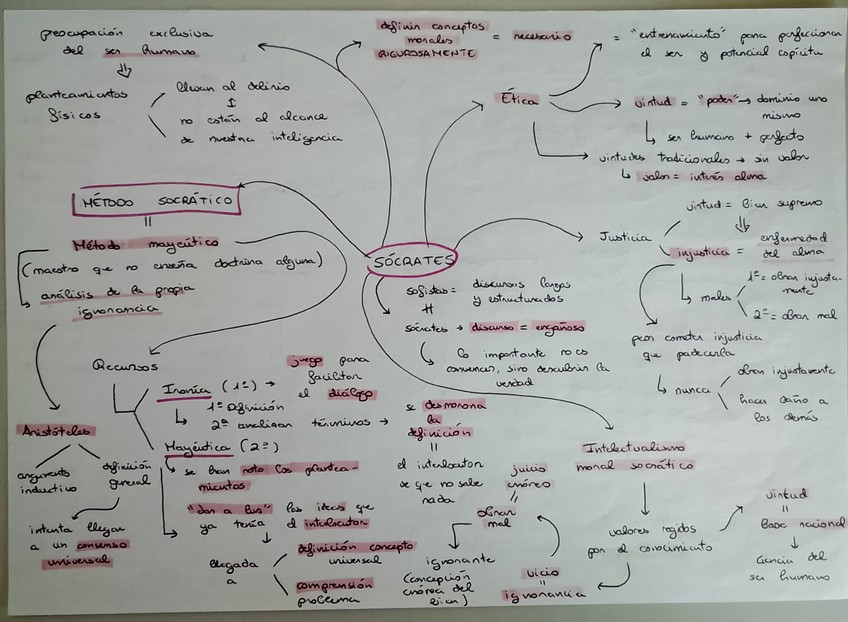 preocupación exclusiva
del ser humano
planteamientos
físicos
llevan al delirio
no están al alcance
de nuestra inteligencia
definir conceptos
morales
RIGUROSAMENTE
= necesario
Ética
= "entrenamiento" para perfeccionar
el ser y potencial
virtud = "poder" → dominio uno
mismo
ser humano + perfecto
virtudes tradicionales → sin valor
valor = interés alma
MÉTODO SOCRÁTICO
=
Método mayéutico
(maestro que no enseña doctrina alguna)
análisis de la propia
ignorancia
SÓCRATES
Justicia
virtud = bien supremo
injusticia = enfermedad
del alma
males
1º = obran injusta-
mente
2º = obran mal
peor cometer injusticia
que padecerla
nunca
obran injustamente
hacer daño a
los demás
sofistas = discursos largos
y estructurados
≠
sócrates → discurso = engañoso
lo importante no es
convencer, sino descubrir la
verdad
Recursos
Ironía (1º) →
juego para
facilitar
el diálogo
1º definición
2º analizar términos →
se desmorona
la
definición
=
el interlocutor
ve que no sabe
nada
Mayéutica (2º)
se han roto los plantea-
mientos
"dan a luz" las ideas que
ya tenía el interlocutor
llegada
a
definición concepto
universal
comprensión
problema
Aristóteles
argumento
inductivo
definición
general
intenta llegar
a un consenso
universal
Intelectualismo
moral socrático
valores regidos
por el conocimiento
virtud
=
base racional
ciencia del
ser humano
vicio
=
ignorancia
juicio
erróneo
=
obrar
mal
ignorante
(concepción
errónea del
bien)